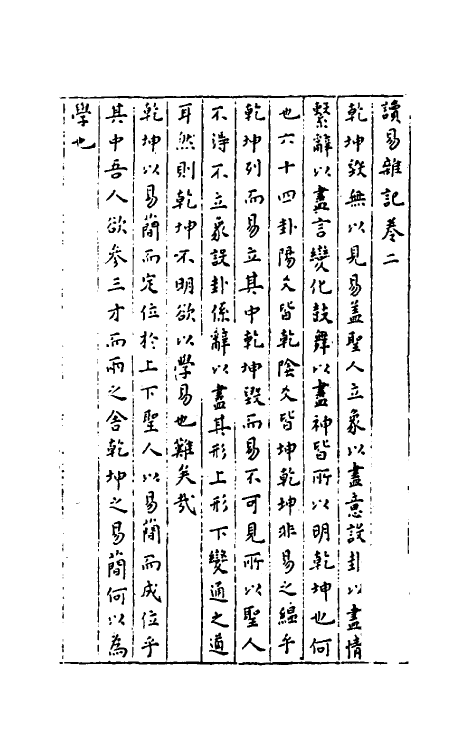 讀易雜記卷二
乾坤毀無以見易蓋聖人立象以盡意設卦以盡情
繫辭以盡言變化鼓舞以盡神皆所以明乾坤也何
也六十四卦陽爻皆乾陰爻皆坤乾坤非易之縕乎
乾坤列而易立其中乾坤毀而易不可見所以聖人
不得不立象設卦係辭以盡其形上形下變通之道
耳然則乾坤不明欲以學易也難矣哉
乾坤以易簡而定位於上下聖人以易簡而成位乎
其中吾人欲參三才而兩之舍乾坤之易簡何以為
學也